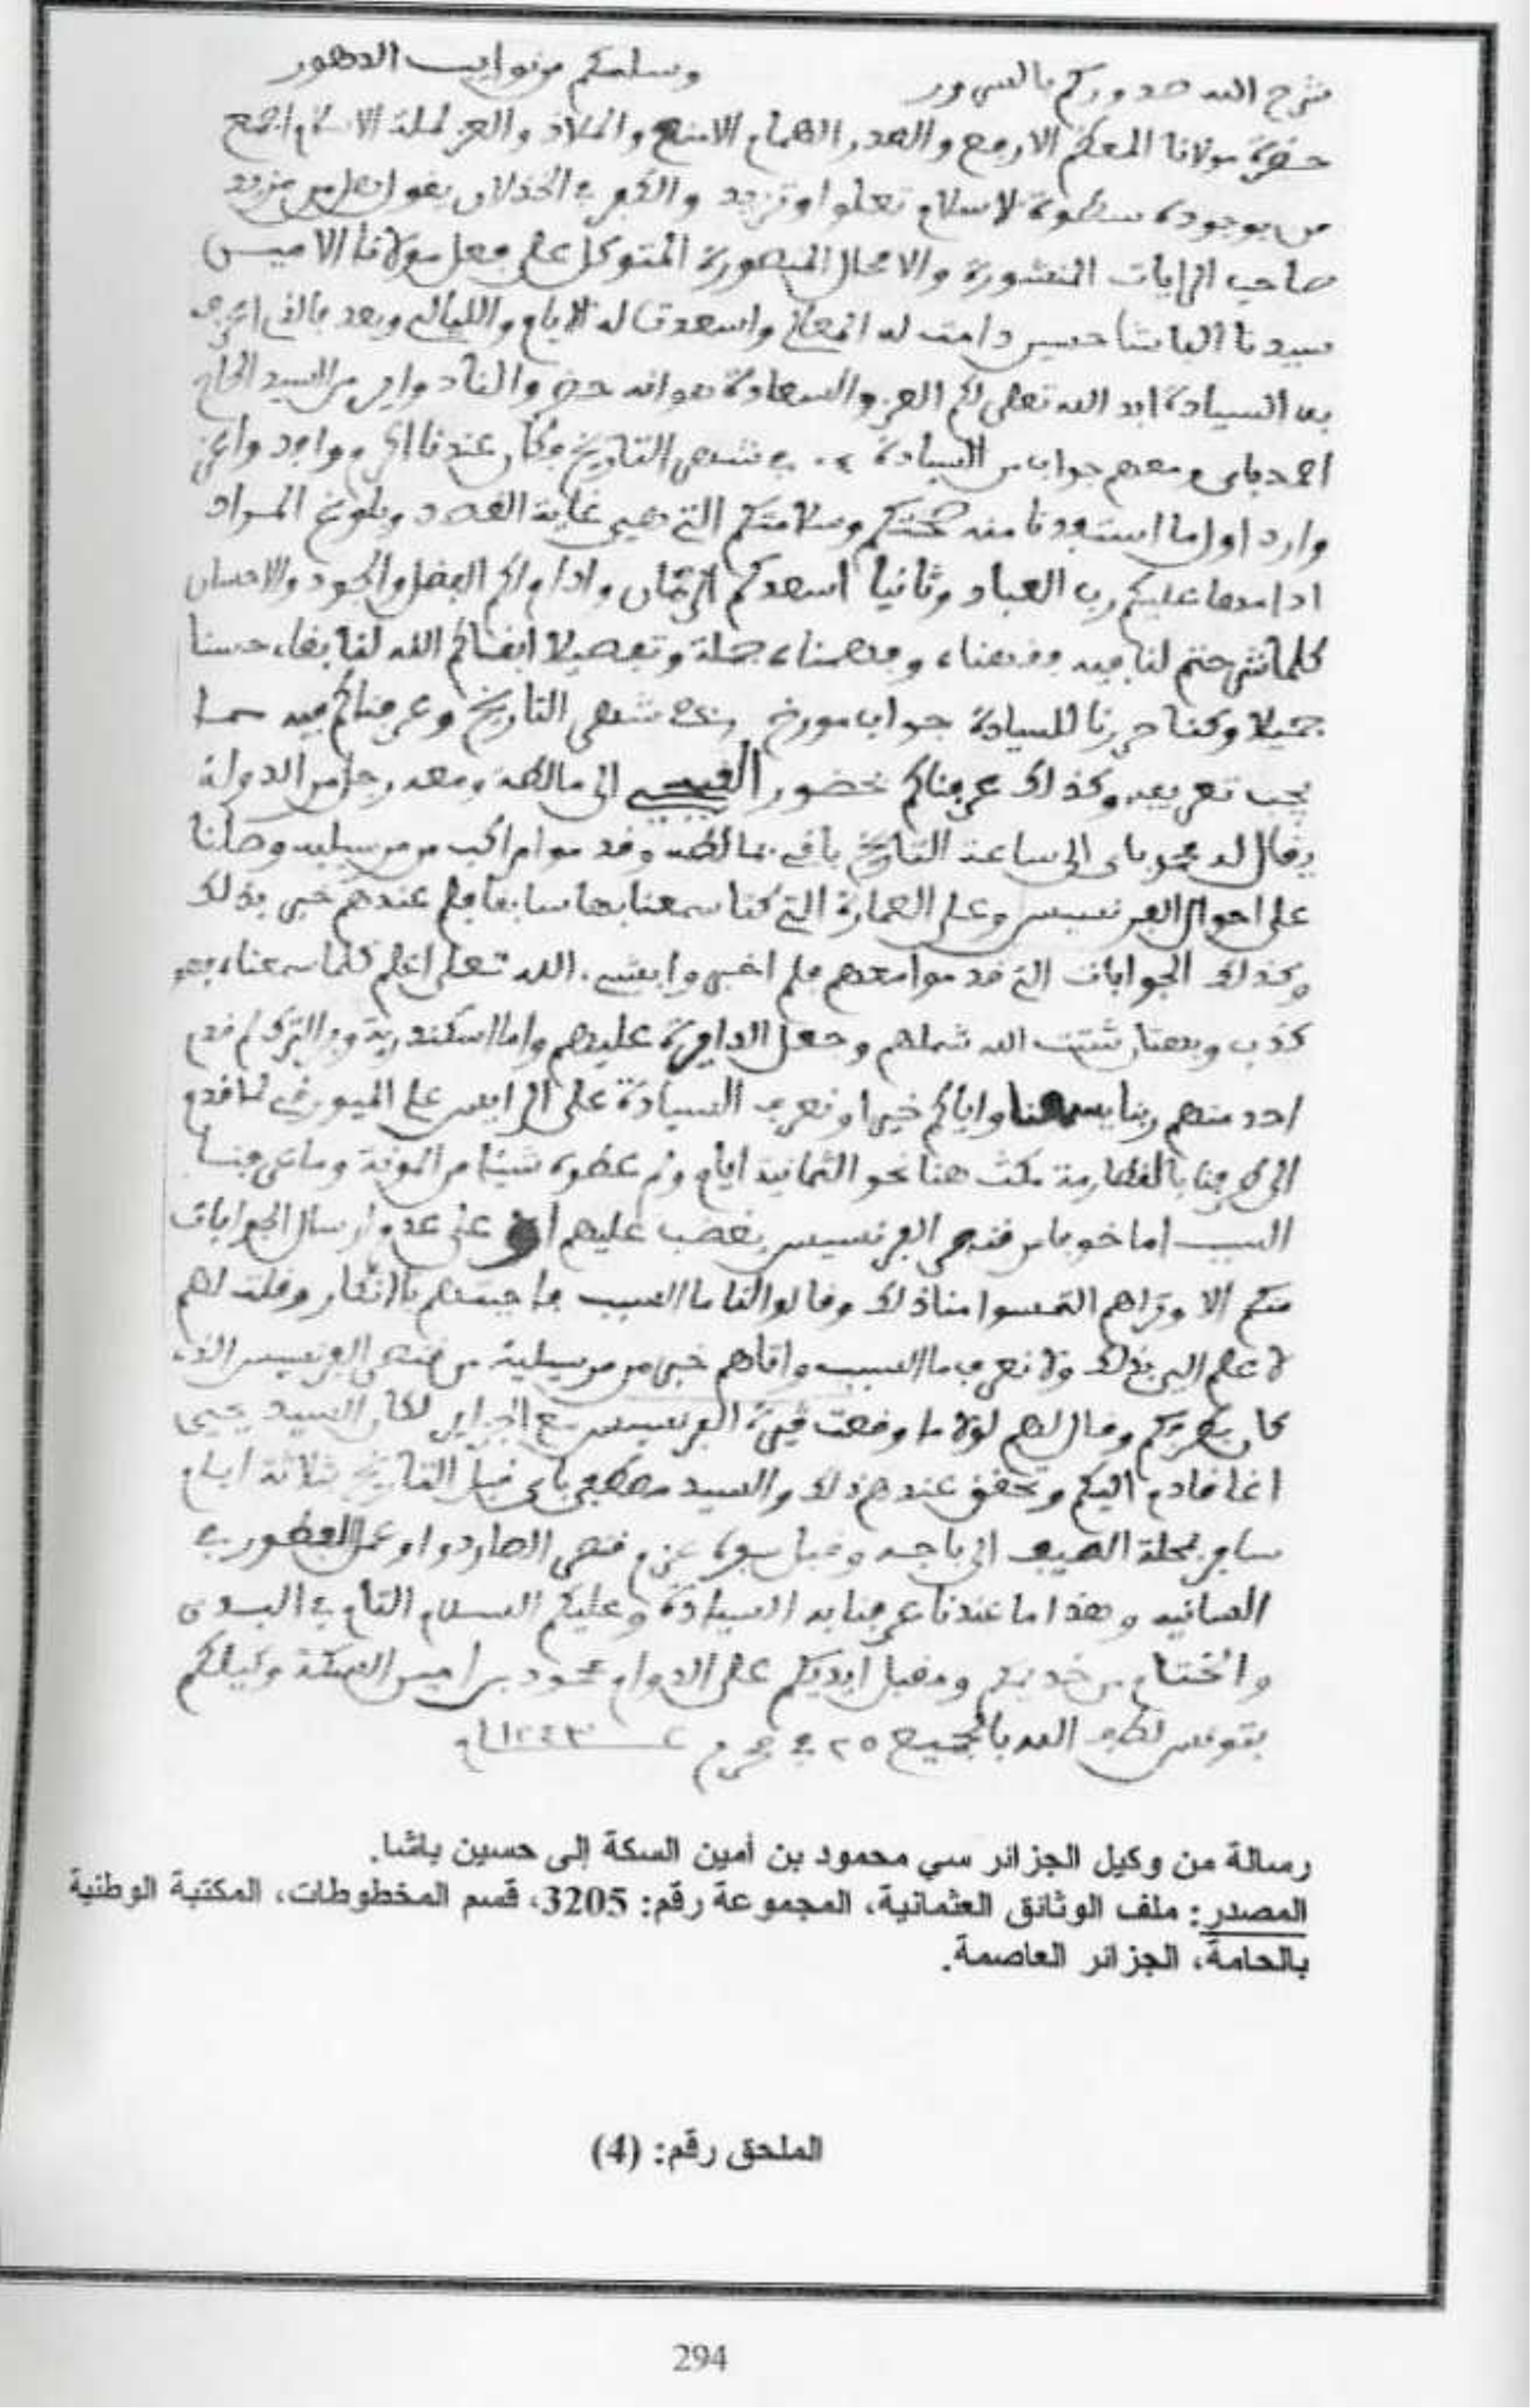 شرح الله صدوركم بالسرور وسلمكم من نوايب الدهور
حضرة مولانا المعظم الارفع والصدر الهمام الامنع والملاذ والعز لملة الاسلام اجمع
من بوجوده سطوة الاسلام تعلوا وتزيد والكفر في الخذلان يقول هل من مزيد
صاحب الرايات المنشورة والامحال المنصورة المتوكل على فعل مولانا الامين
سيدنا الباشا حسين دامت له المعالي واسعدت له الايام والليالي وبعد فالذي اعرف
به السيادة ابد الله تعالى لكم العز والسعادة هو انه حضر والنا دواير من السيد الحاج
احمد باي ومعهم جواب من السيادة في شهر التاريخ فكان عندنا اعز وافد واعز
وارد اول ما استفدنا منه صحتكم وسلامتكم التي هي غاية القصد وبلوغ المراد
ادامها عليكم رب العباد وثانيا اسعدكم الزمان وادام لكم الفضل والجود والاحسان
كلما شرحتم لنا فيه وفهمناه جملة وتفصيلا ابقاكم الله لنا بقاء حسنا
جميلا وكنا حررنا للسيادة جواب مورخ شهر التاريخ وعرفناكم فيه بما
يجب تعريفه وكذلك عرفناكم بحضور الى مالطه ومعه رجل من الدولة
يقال له باي الى ساعة التاريخ باقي بمالطه وقدموا مراكب من مرسيليه وصلنا
على احوال الفرنسيس وعلى العمارة التي كنا سمعنا بها سابقا فلم عندهم خبر بذلك
وكذلك الجوابات التي قدموا معهم فلم اخبروا بشيء الله تعالى اعلم كلما سمعناه
كذب وبهتان شتت الله شملهم وجعل الدايرة عليهم واما اسكندرية وبر الترك لم قدم
احد منهم ربنا يسمعنا واياكم خيرا ونعرف السيادة على الرايس علي الميورقي لما قدم
الى طرفنا مكث هنا نحو الثمانية ايام ولم عطوه شيئا من المونة وما عرفنا
السبب اما خوفا من قنصر الفرنسيس يغضب عليهم او على عدم ارسال الجوابات
منكم الا ونراهم التمسوا منا ذلك وقالوا لنا ما السبب فاجبتهم بالانكار وقلت لهم
لا علم الي بذلك ولا نعرف ما السبب واتاهم خبر من مرسيلية من قنصر الفرنسيس الذي
كان بطرفكم وقال لهم لولا ما وقعت الفرنسيس مع الجزاير لكان السيد يحيى
اغا قادم اليكم وتحقق عندهم ذلك والسيد مصطفى باي قبل التاريخ ثلاثة ايام
سافر بمحلة الصيف الى باجه وقبل سفره عزم قنصر الصاردوا وعمل الفطور في
السانيه وهذا ما عندنا عرفنا به السيادة وعليكم السلام التام في البدء
والختام من خديمكم ومقبل ايديكم على الدوام محمود بن امين السكة وكيلكم
بتونس لطف الله بالجميع ٢٥ في محرم ١٢٤٣
رسالة من وكيل الجزائر سي محمود بن أمين السكة إلى حسين باشا.
المصدر: ملف الوثائق العثمانية، المجموعة رقم: 3205، قسم المخطوطات، المكتبة الوطنية
بالحامة، الجزائر العاصمة.
الملحق رقم: (4)
294